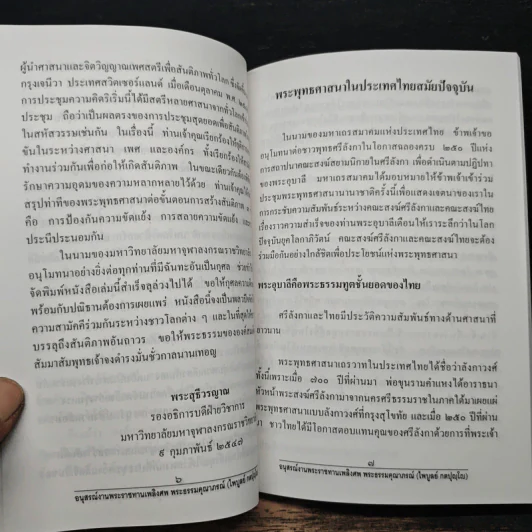 ผู้นำศาสนาและจิตวิญญาณเพศสตรีเพื่อสันติภาพทั่วโลก
กรุงเจนีวา ประเทศสวิตเซอร์แลนด์ เมื่อเดือนตุลาคม พ.ศ.
การประชุมความคิดริเริ่มนี้ได้มีสตรีหลายศาสนาจากทั่วโลก
ประชุม ถือว่าเป็นผลตรงของการประชุมสุดยอดเพื่อสันติภาพ
ในสหัสวรรษเช่นกัน ในเรื่องนี้ ท่านเจ้าคุณเรียกร้องให้
ขันในระหว่างศาสนา เพศ และองค์กร ทั้งเรียกร้องให้
ทำงานร่วมกันเพื่อก่อให้เกิดสันติภาพ ในขณะเดียวกันต้อง
รักษาความอุดมของความหลากหลายไว้ด้วย ท่านเจ้าคุณได้
สรุปท่าทีของพระพุทธศาสนาต่อขั้นตอนการสร้างสันติภาพ
คือ การป้องกันความขัดแย้ง การสลายความขัดแย้ง และ
ประนีประนอมกัน
ในนามของมหาวิทยาลัยมหาจุฬาลงกรณราชวิทยาลัย
อนุโมทนาอย่างยิ่งต่อทุกท่านที่มีฉันทะอันเป็นกุศล
จัดพิมพ์หนังสือเล่มนี้สำเร็จลุล่วงไปได้ ขอให้กุศลความ
พร้อมกับปณิธานต้องการเผยแพร่ หนังสือนี้จงเป็นพลวปัจจัย
ความสามัคคีร่วมกันระหว่างชาวโลกต่าง ๆ และในที่สุด
บรรลุถึงสันติภาพอันถาวร ขอให้พระธรรมขององค์
สัมมาสัมพุทธเจ้าจงดำรงมั่นชั่วกาลนานเทอญ
พระสุธีวรญาณ
รองอธิการบดีฝ่ายวิชาการ
มหาวิทยาลัยมหาจุฬาลงกรณราชวิทยาลัย
๙ กุมภาพันธ์ ๒๕๔๗
๖
อนุสรณ์งานพระราชทานเพลิงศพ พระธรรมคุณาภรณ์ (ไพบูลย์ กตปุญฺโญ)
พระพุทธศาสนาในประเทศไทยสมัยปัจจุบัน
ในนามของมหาเถรสมาคมแห่งประเทศไทย ข้าพเจ้าขอ
อนุโมทนาต่อชาวพุทธศรีลังกาในโอกาสฉลองครบ ๒๕๐ ปีแห่ง
การสถาปนาคณะสงฆ์สยามนิกายในศรีลังกา เพื่อดำเนินตามปฏิปทา
ของพระอุบาลี มหาเถรสมาคมได้มอบหมายให้ข้าพเจ้าเข้าร่วม
ประชุมพระพุทธศาสนานานาชาติครั้งนี้เพื่อแสดงเจตนาของเราใน
การกระชับความสัมพันธ์ระหว่างคณะสงฆ์ศรีลังกาและคณะสงฆ์ไทย
เรื่องราวความสำเร็จของท่านพระอุบาลีเตือนให้เราระลึกว่าในโลก
ปัจจุบันยุคโลกาภิวัตน์ คณะสงฆ์ศรีลังกาและคณะสงฆ์ไทยจะต้อง
ร่วมมือกันอย่างใกล้ชิดเพื่อประโยชน์แห่งพระพุทธศาสนา
พระอุบาลีคือพระธรรมทูตชั้นยอดของไทย
ศรีลังกาและไทยมีประวัติความสัมพันธ์ทางด้านศาสนาที่
ยาวนาน
พระพุทธศาสนาเถรวาทในประเทศไทยได้ชื่อว่าลังกาวงศ์
ทั้งนี้เพราะเมื่อ ๗๐๐ ปีที่ผ่านมา พ่อขุนรามคำแหงได้อาราธนา
หัวหน้าพระสงฆ์ศรีลังกามาจากนครศรีธรรมราชในภาคใต้มาเผยแผ่
พระพุทธศาสนาแบบลังกาวงศ์ที่กรุงสุโขทัย และเมื่อ ๒๕๐ ปีที่ผ่าน
ชาวไทยได้มีโอกาสตอบแทนคุณของศรีลังกาด้วยการที่พระเจ้า
๗
อนุสรณ์งานพระราชทานเพลิงศพ พระธรรมคุณาภรณ์ (ไพบูลย์ กตปุญฺโญ)